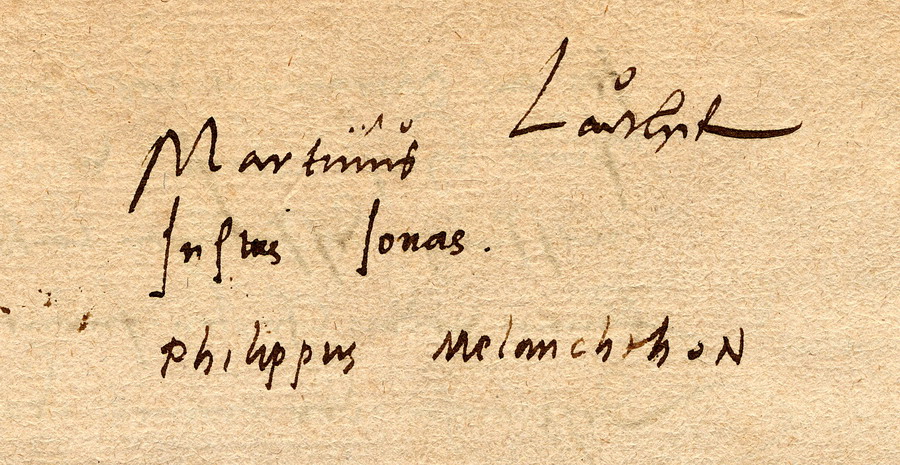 Martinus Lůther
Justus Jonas.
philippus Melanchthon